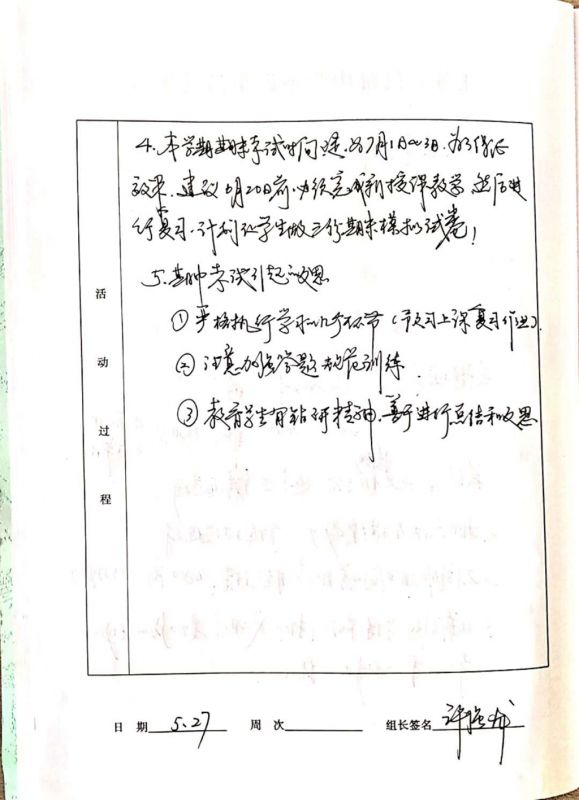 4. 本学期期末考试时间是7月1日~3日. 为了保证
效果. 建议6月20日前必须完成新授课教学. 然后进
行复习. 计划让学生做三份期末模拟试卷!
5. 期中考试引起的反思
① 严格执行学习的几个环节(预习上课复习作业).
② 注意加强答题规范训练.
③ 教育学生有钻研精神. 善于进行总结和反思
活动过程
日期 5.27 周次 组长签名 许